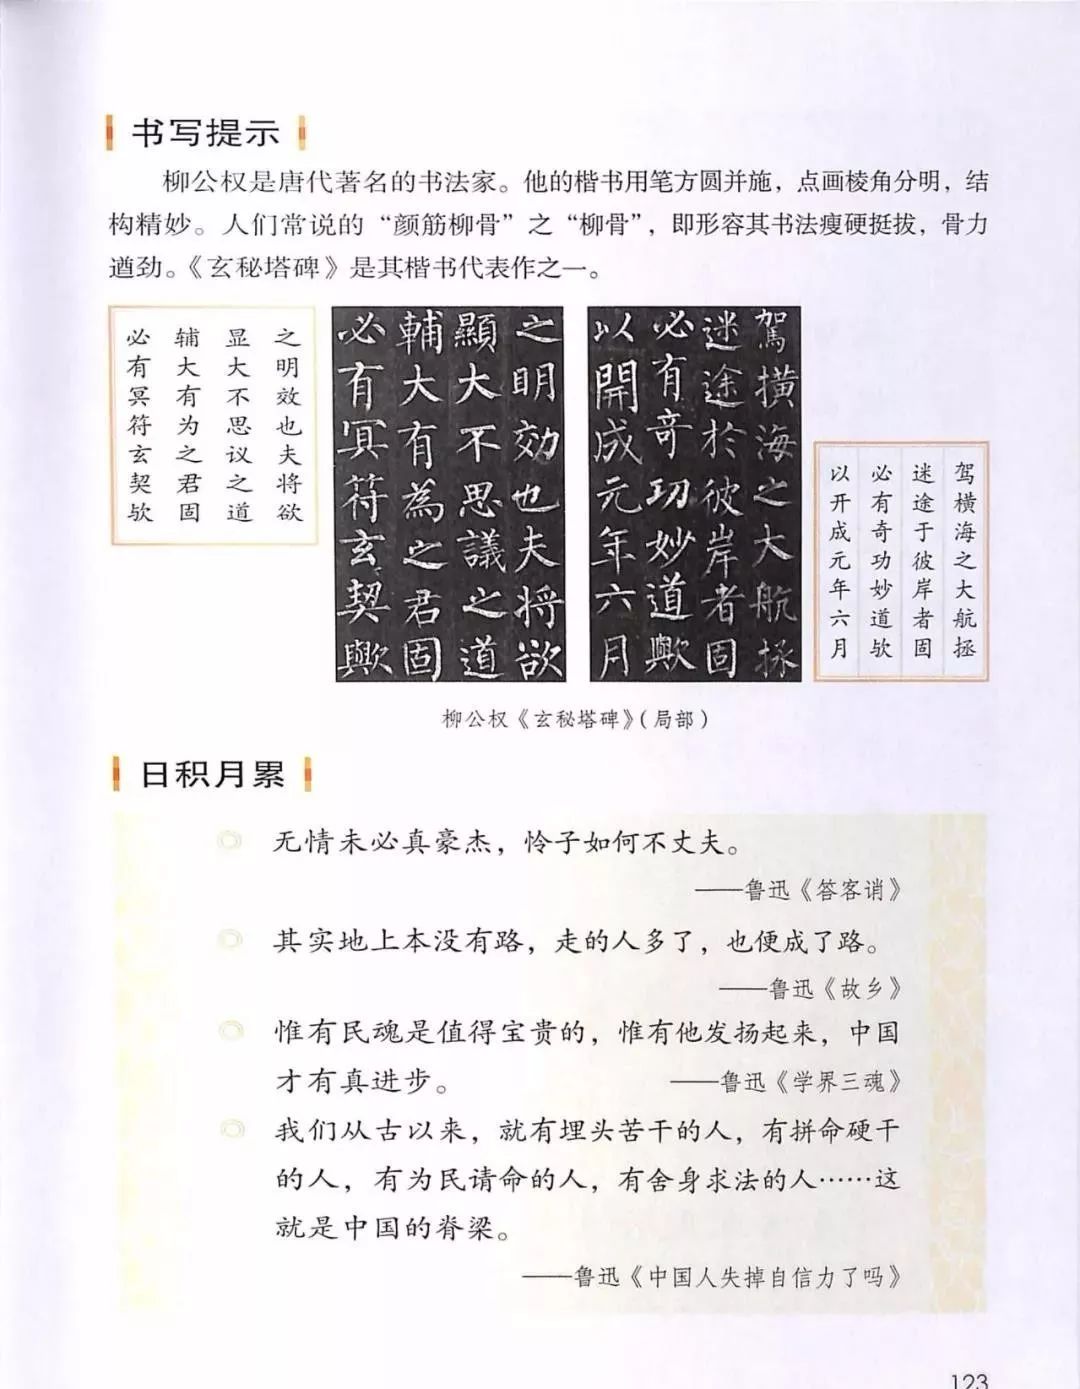 书写提示
柳公权是唐代著名的书法家。他的楷书用笔方圆并施，点画棱角分明，结
构精妙。人们常说的“颜筋柳骨”之“柳骨”，即形容其书法瘦硬挺拔，骨力
遒劲。《玄秘塔碑》是其楷书代表作之一。
驾横海之大航拯
迷途于彼岸者固
必有奇功妙道欤
以开成元年六月
駕橫海之大航拯
迷途於彼岸者固
必有奇功妙道歟
以開成元年六月
之明効也夫將欲
顯大不思議之道
輔大有為之君固
必有冥符玄契歟
之明效也夫将欲
显大不思议之道
辅大有为之君固
必有冥符玄契欤
柳公权《玄秘塔碑》（局部）
日积月累
无情未必真豪杰，怜子如何不丈夫。
——鲁迅《答客诮》
其实地上本没有路，走的人多了，也便成了路。
——鲁迅《故乡》
惟有民魂是值得宝贵的，惟有他发扬起来，中国
才有真进步。 ——鲁迅《学界三魂》
我们从古以来，就有埋头苦干的人，有拼命硬干
的人，有为民请命的人，有舍身求法的人……这
就是中国的脊梁。
——鲁迅《中国人失掉自信力了吗》
123